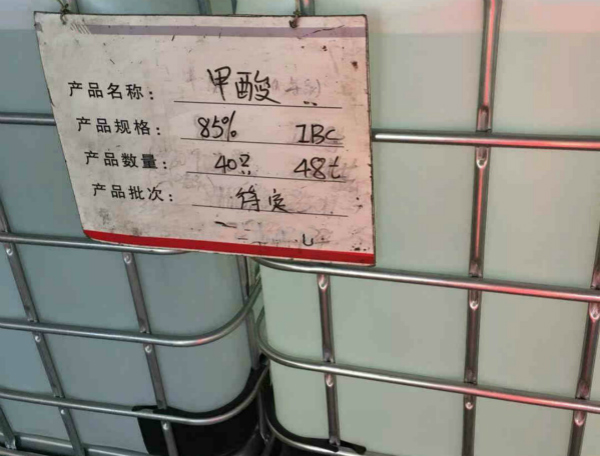 产品名称： 甲酸
产品规格： 85% IBC
产品数量： 40只 48t
产品批次： 待定